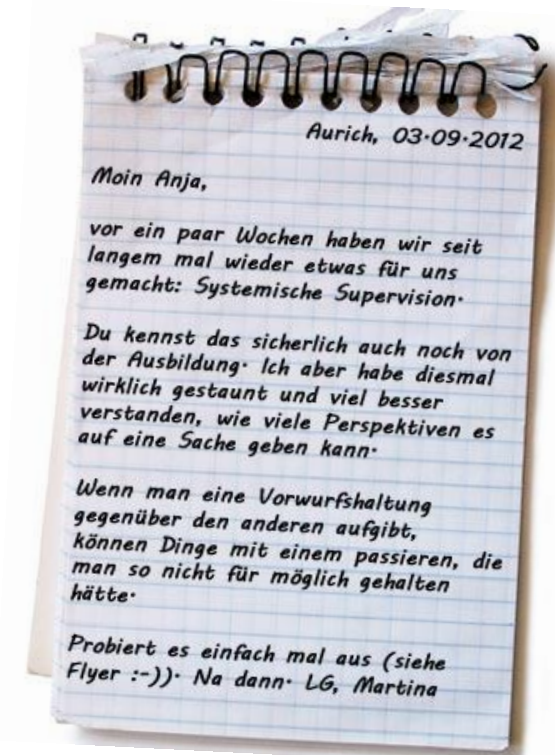 Aurich, 03.09.2012
Moin Anja,
vor ein paar Wochen haben wir seit
langem mal wieder etwas für uns
gemacht: Systemische Supervision.
Du kennst das sicherlich auch noch von
der Ausbildung. Ich aber habe diesmal
wirklich gestaunt und viel besser
verstanden, wie viele Perspektiven es
auf eine Sache geben kann.
Wenn man eine Vorwurfshaltung
gegenüber den anderen aufgibt,
können Dinge mit einem passieren, die
man so nicht für möglich gehalten
hätte.
Probiert es einfach mal aus (siehe
Flyer :-)). Na dann. LG, Martina